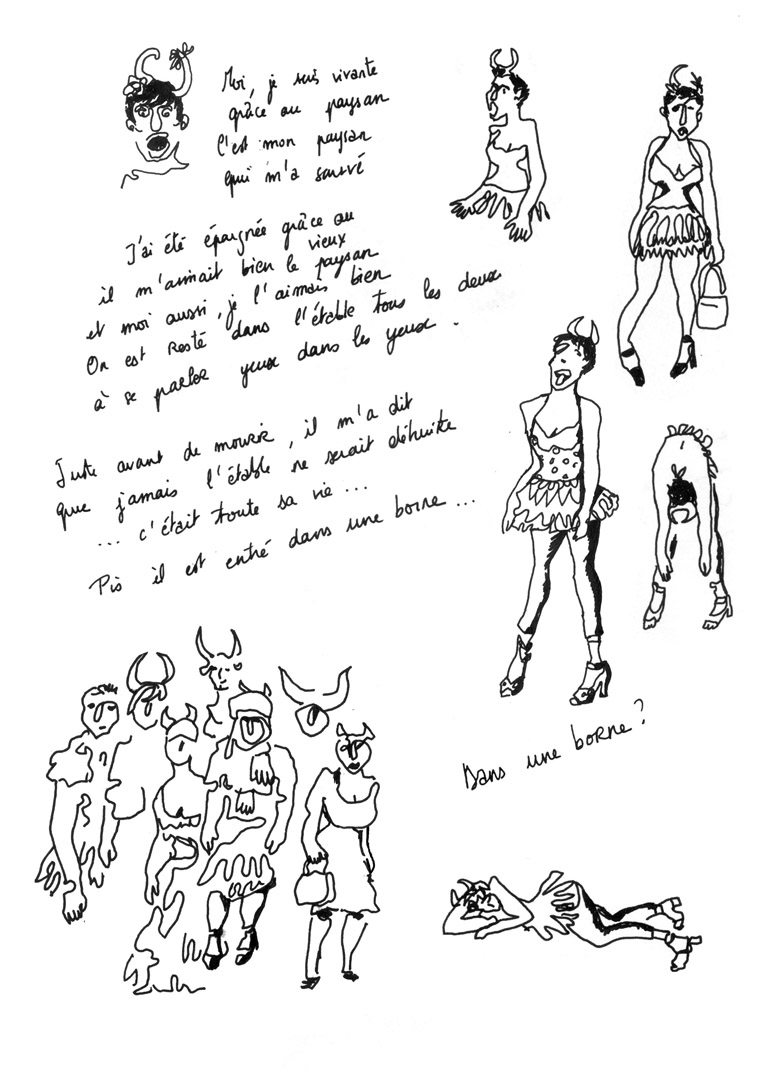 Moi, je suis vivante
grâce au paysan
C'est mon paysan
qui m'a sauvé
J'ai été épargnée grâce au vieux
il m'aimait bien le paysan
et moi aussi, je l'aimais bien
On est resté dans l'étable tous les deux
à se parler yeux dans les yeux.
Juste avant de mourir, il m'a dit
que jamais l'étable ne serait détruite
... c'était toute sa vie ...
Pis il est entré dans une borne ...
Dans une borne?